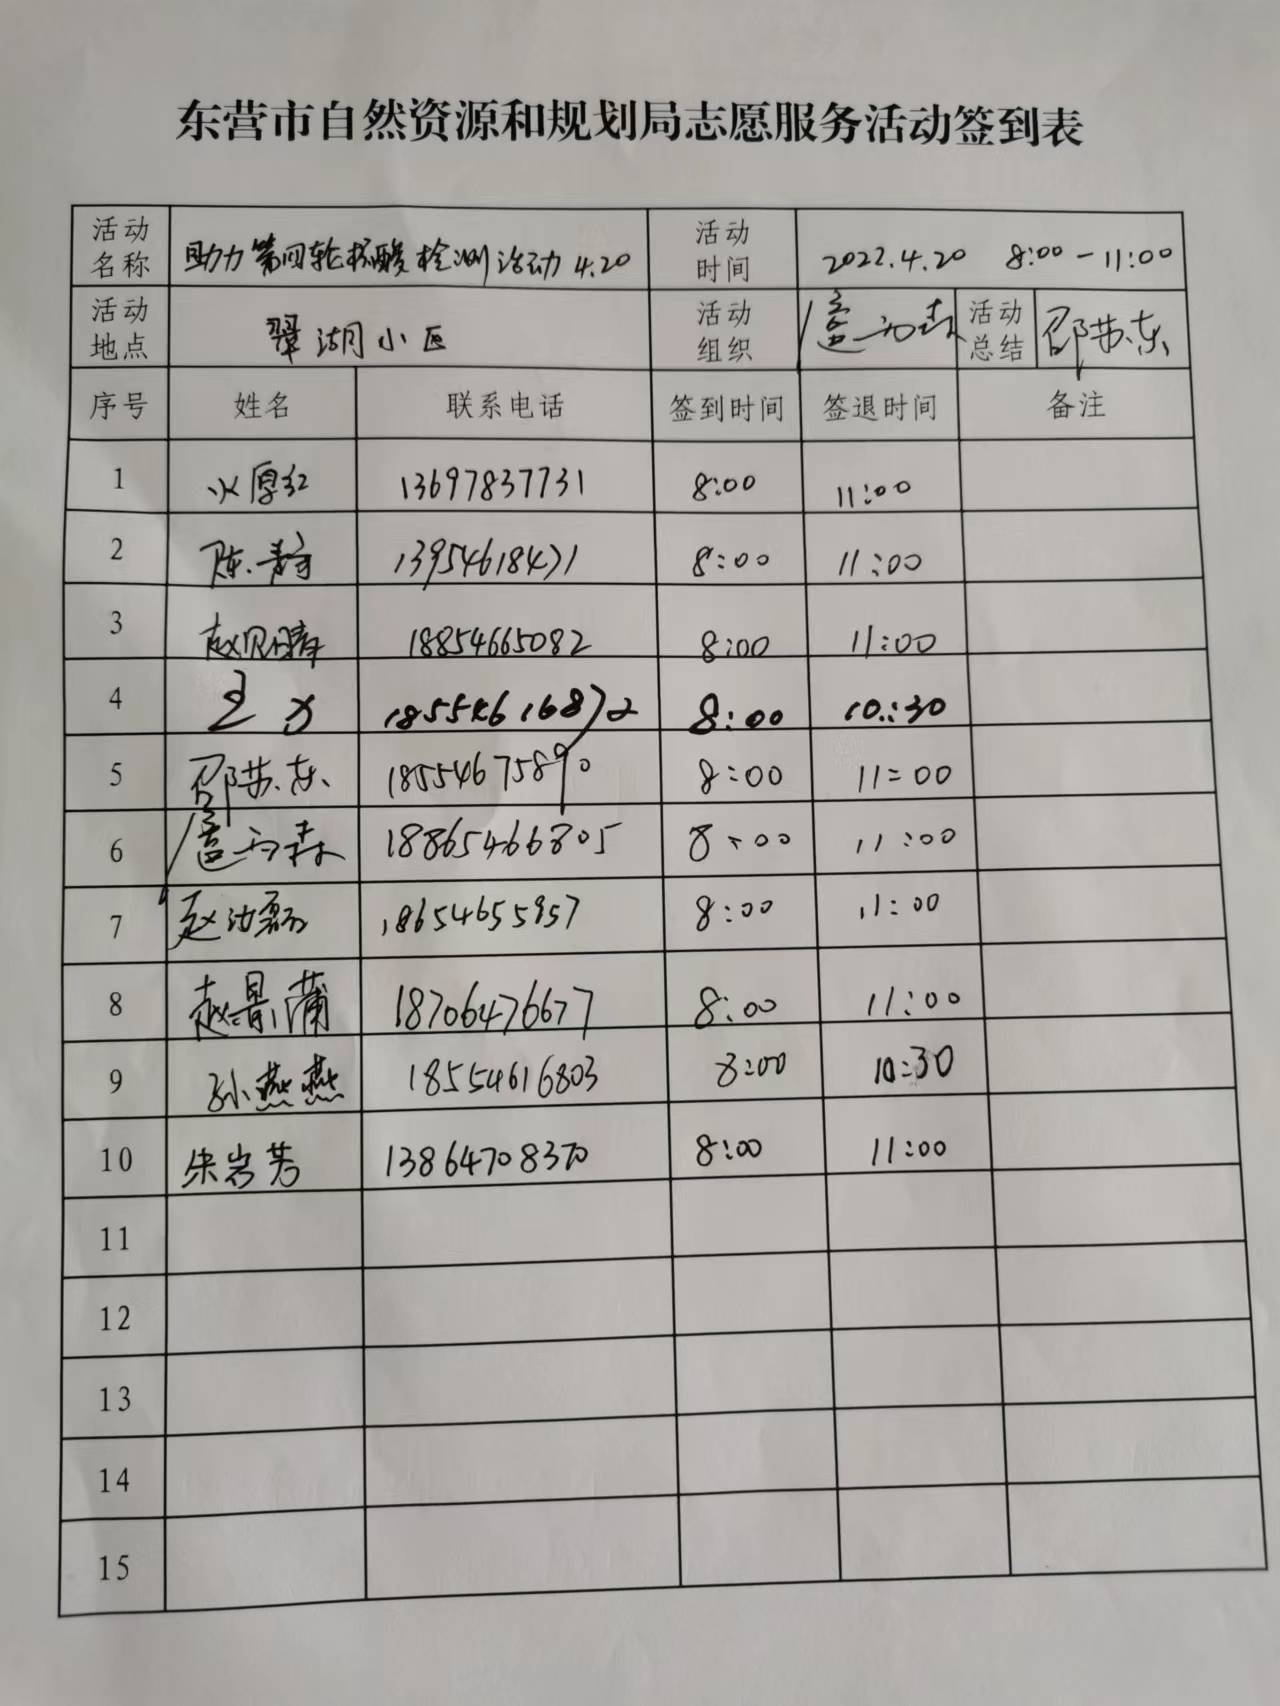 东营市自然资源和规划局志愿服务活动签到表
活动名称 助力第四轮核酸检测活动4.20 活动时间 2022.4.20 8:00-11:00
活动地点 翠湖小区 活动组织 活动总结 邵苏东
序号 姓名 联系电话 签到时间 签退时间 备注
1 13697837731 8:00 11:00
2 陈静 13954618471 8:00 11:00
3 赵 18854665082 8:00 11:00
4 王 18554616872 8:00 10:30
5 邵苏东 18554675890 8:00 11:00
6 18865466805 8:00 11:00
7 赵 磊 18654655957 8:00 11:00
8 赵景蒲 18706476677 8:00 11:00
9 孙燕燕 18554616803 8:00 10:30
10 朱岩芳 13864708370 8:00 11:00
11
12
13
14
15